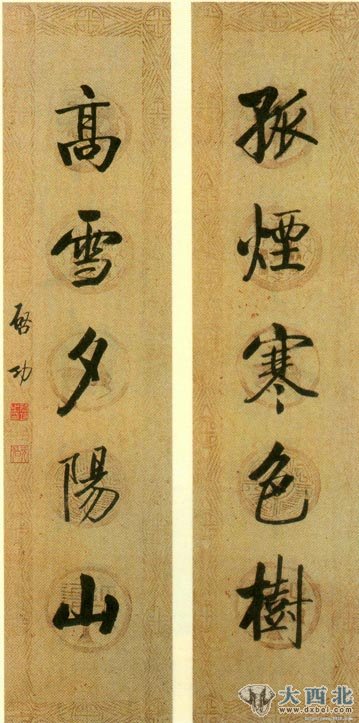 孤煙寒色樹
高雪夕陽山
啓功
大西北
www.dxbei.com